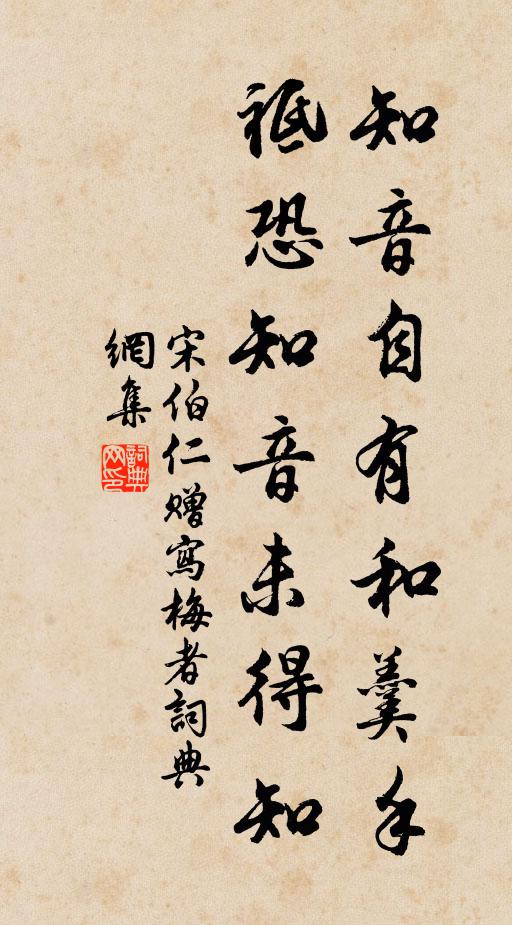 知音自有和羹手
祗恐知音未得知
宋伯仁赠寫梅者詞典
網集
詞典網印